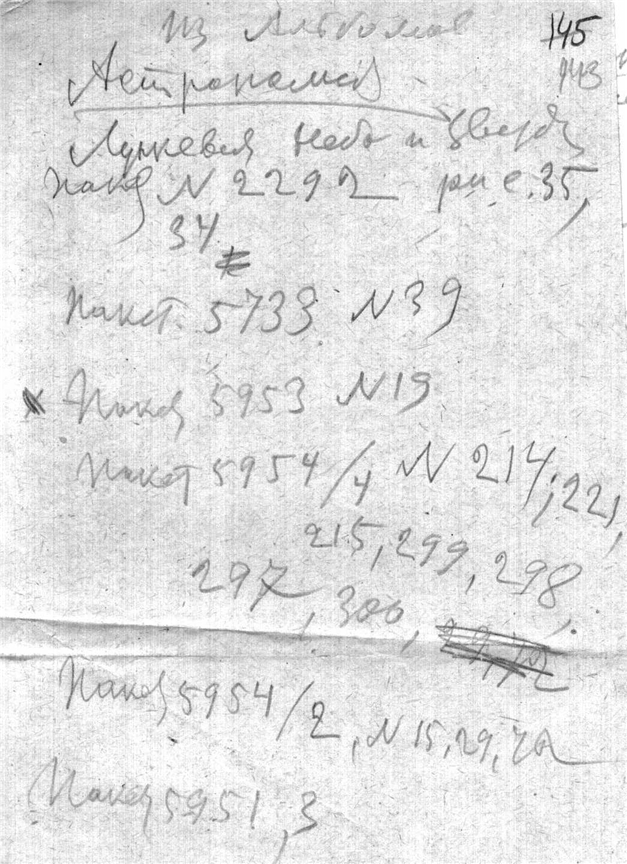 Из Альбомов 145
143
Астрономия
Лункевич Небо и звезды
Пакет N 2292 рис. 35,
34
Пакет. 5733 N 39
Пакет 5953 N 19
Пакет 5954/4 N 214, 221,
215, 299, 298,
297, 300,
Пакет 5954/2, N 15, 29, 72
Пакет 5951, 3